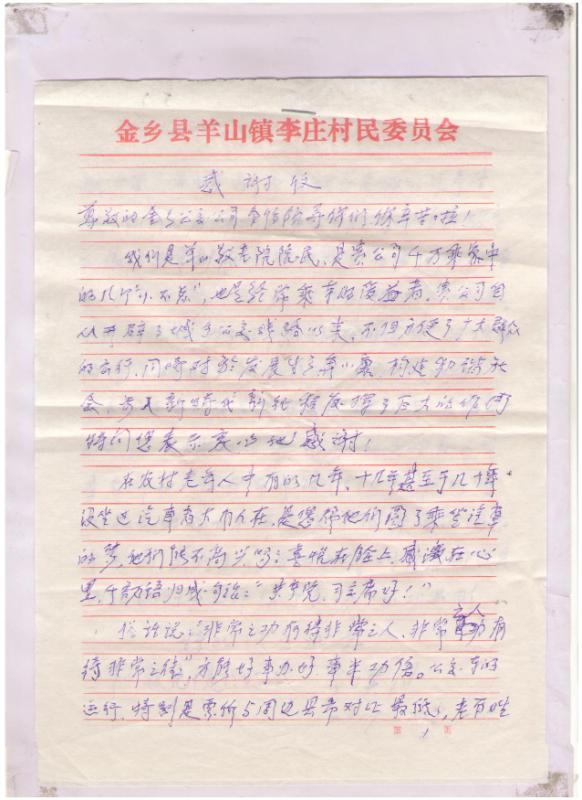 金乡县羊山镇李庄村民委员会
感谢信
尊敬的金乡公交公司全体领导你们你辛苦啦！
我们是羊山敬老院院民、是贵公司千万乘客中
的几个"小不点"，也是经常乘车的受益者，贵公司自
从开辟了城乡公交线路以来，不但方便了广大群众
的出行，同时对于发展生产奔小康，构建和谐社
会，步入新时代新征程发挥了巨大的作用
特向您表示衷心地感谢！
在农村老年人中有的几年、十几年甚至于几十年
没坐过汽车者大有人在，是您帮他们圆了乘坐汽车
的梦，他们能不高兴吗？喜悦在脸上，感激在心
里，千言万语归成句话："共产党，习主席好！"
俗话说："非常之功有待非常之人，非常之人有
待非常之德"，方能好事办好 事半功倍。公交车的
运行，特别是票价与周边县市对比最低，老百姓
第 1 页